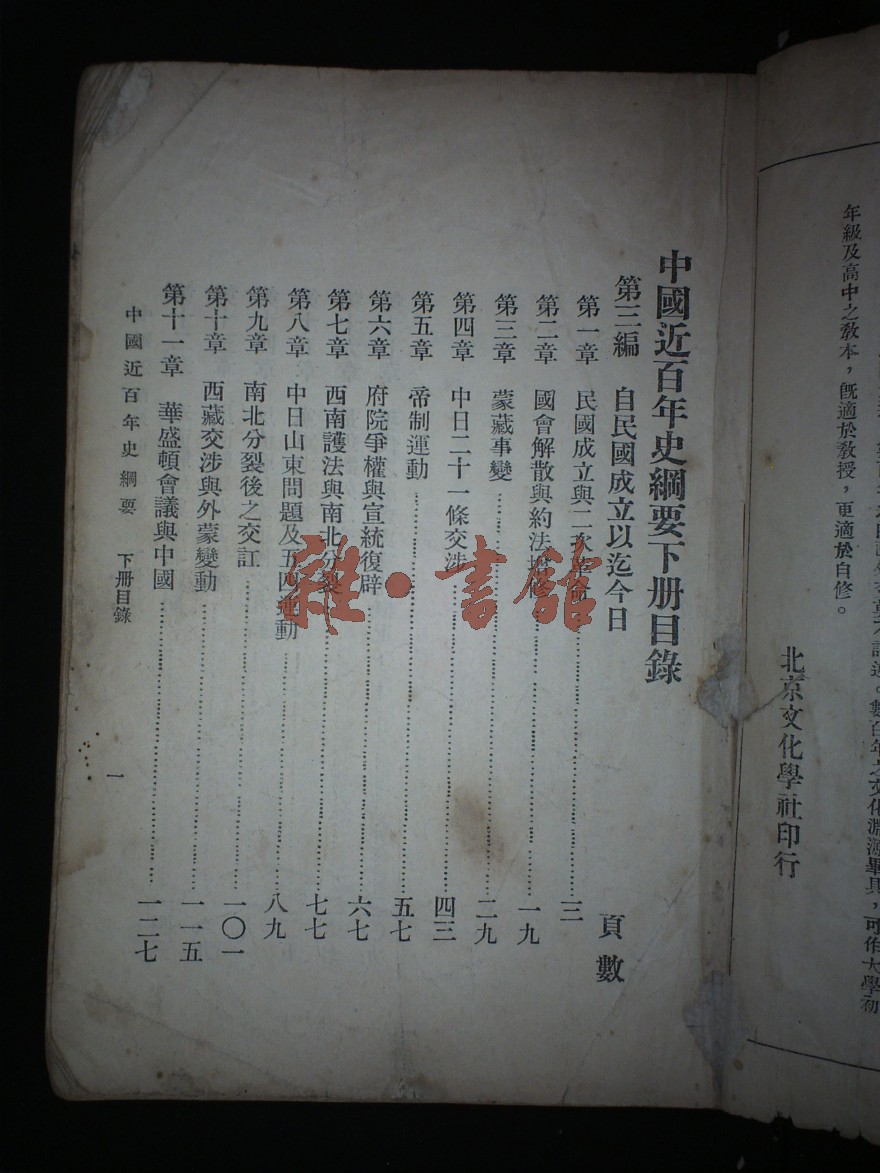 數百年之文化淵源畢具，可作大學初
年級及高中之教本，既適於教授，更適於自修。
北京文化學社印行
中國近百年史綱要下册目錄
頁數
第三編 自民國成立以迄今日
第一章 民國成立與二次革命……三
第二章 國會解散與約法增修……一九
第三章 蒙藏事變……二九
第四章 中日二十一條交涉……四三
第五章 帝制運動……五七
第六章 府院爭權與宣統復辟……六七
第七章 西南護法與南北分裂……七七
第八章 中日山東問題及五四運動……八九
第九章 南北分裂後之交訌……一〇一
第十章 西藏交涉與外蒙變動……一一五
第十一章 華盛頓會議與中國……一二七
中國近百年史綱要 下册目錄 一
雜·書館